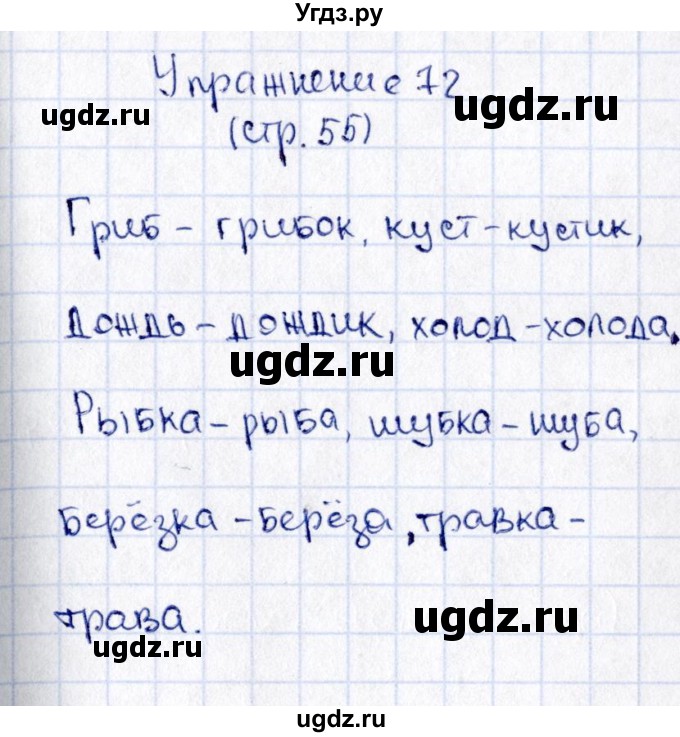 Угдз.ру
Упражнение 72
ugdz.ru
ugdz.ru
(стр. 55)
Гриб - грибок, куст - кустик,
дождь - дождик, холод - холода.
ugdz.ru
Рыбка - рыба, шубка - шуба,
берёзка - берёза, травка -
трава.
ugdz.ru
ugdz.ru
ugdz.ru